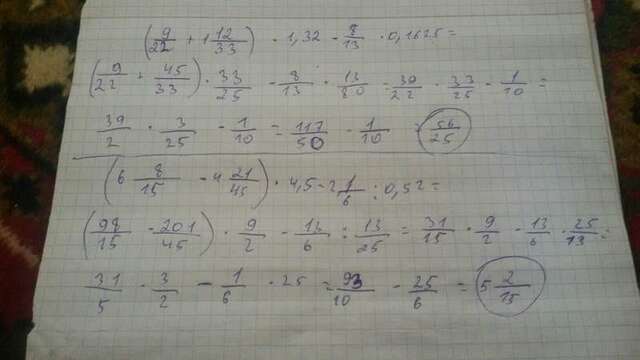 (9/22 + 1 12/33) · 1,32 - 8/13 · 0,1625 =
(9/22 + 45/33) · 33/25 - 8/13 · 13/80 = 39/22 · 33/25 - 1/10 =
39/2 · 3/25 - 1/10 = 117/50 - 1/10 = 56/25
(6 8/15 - 4 21/45) · 4,5 - 2 1/6 : 0,52 =
(98/15 - 201/45) · 9/2 - 13/6 : 13/25 = 31/15 · 9/2 - 13/6 · 25/13 =
31/5 · 3/2 - 1/6 · 25 = 93/10 - 25/6 = 5 2/15